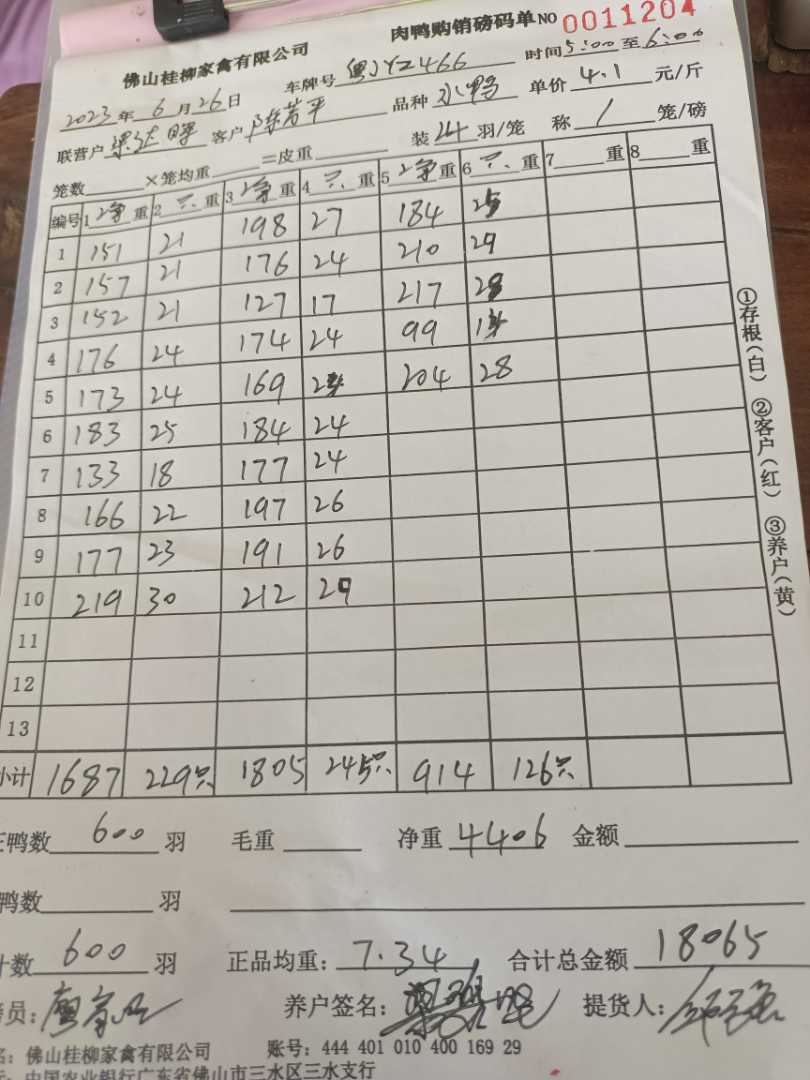 肉鸭购销磅码单 NO 0011204
佛山桂柳家禽有限公司
车牌号 粤JYZ466 时间 5:00 至 6:00
2023 年 6 月 26 日 品种 水鸭 单价 4.1 元/斤
联营户 梁达 客户 陈芳平 装 24 羽/笼 称 / 笼/磅
笼数 ×笼均重 =皮重
编号 1 净 重 2 只 重 3 净 重 4 只 重 5 净 重 6 只 重 7 重 8 重
1 151 21 198 27 184 25
2 157 21 176 24 210 29
3 152 21 127 17 217 28
4 176 24 174 24 99
5 173 24 169 204 28
6 183 25 184 24
7 133 18 177 24
8 166 22 197 26
9 177 23 191 26
10 219 30 212 29
11
12
13
小计 1687 229只 1805 245只 914 126只
正鸭数 600 羽 毛重 净重 4406 金额
鸭数 羽
计数 600 羽 正品均重: 7.34 合计总金额 18065
员: 养户签名: 提货人:
名: 佛山桂柳家禽有限公司 账号: 444 401 010 400 169 29
中国农业银行广东省佛山市三水区三水支行
①存根(白) ②客户(红) ③养户(黄)